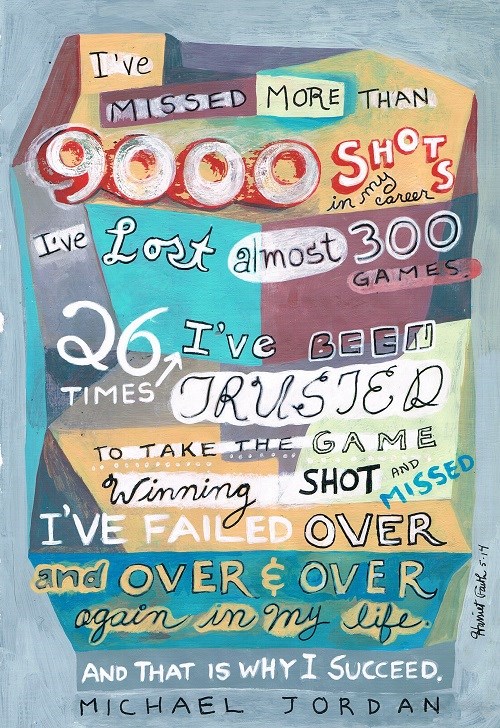 I've
MISSED MORE THAN
9000 SHOTS
in my career
I've Lost almost 300
GAMES.
26 I've BEEN
TIMES TRUSTED
TO TAKE THE GAME
Winning SHOT AND MISSED
I'VE FAILED OVER
and OVER & OVER
again in my life.
AND THAT IS WHY I SUCCEED.
MICHAEL JORDAN
Harriet Faith 5·14